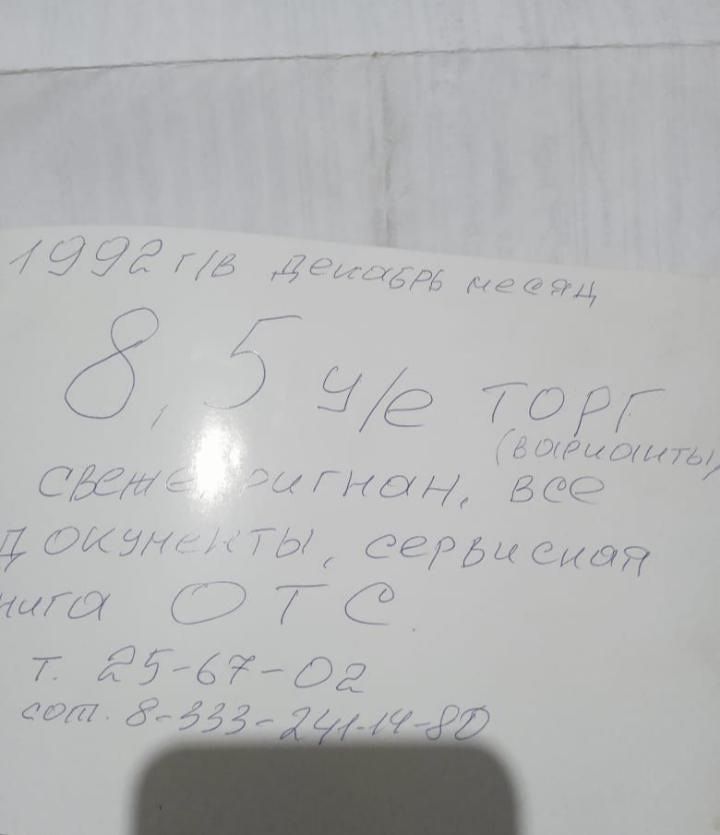 1992 г/в декабрь месяц
8,5 у/е ТОРГ
(варианты)
все
документы, сервисная
нига ОТС.
т. 25-67-02
сот. 8-333-241-14-80